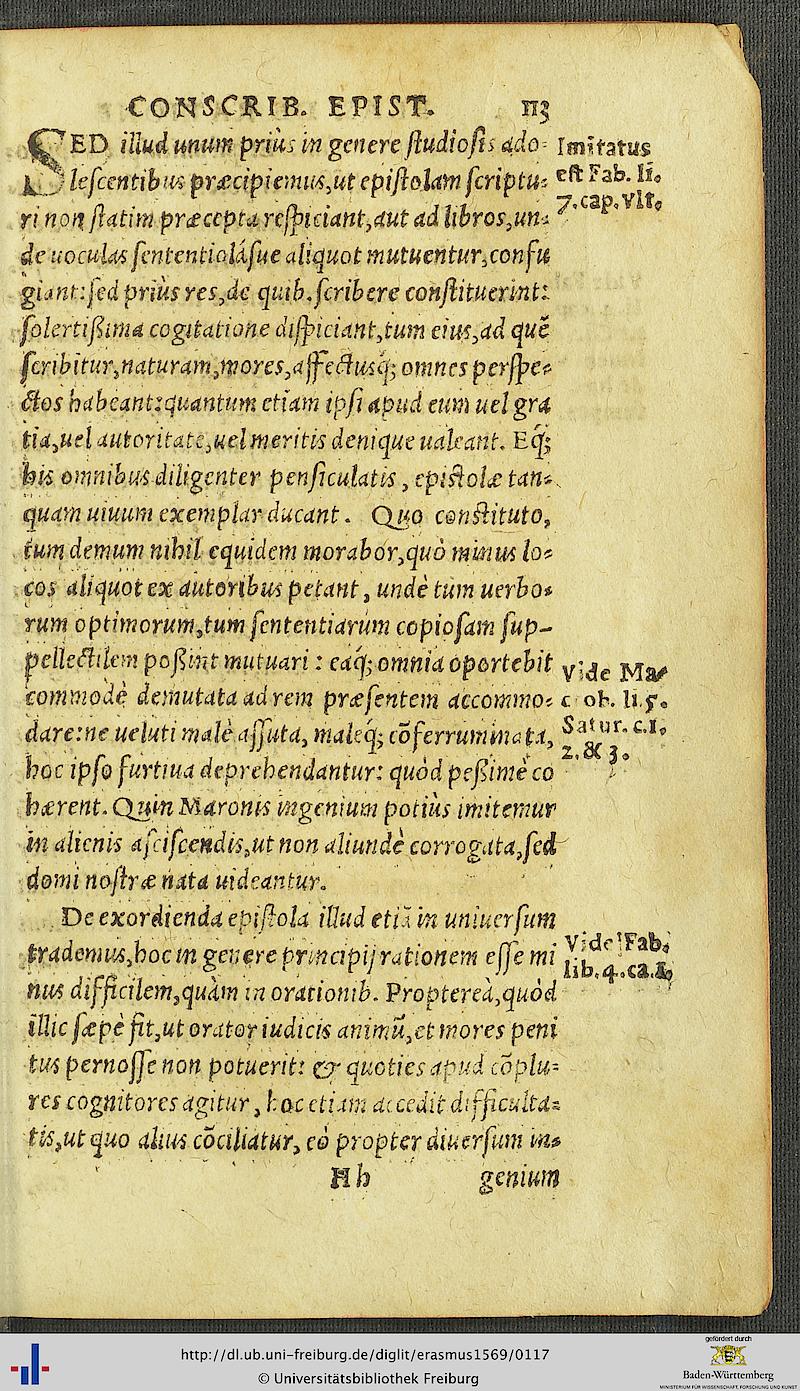 CONSCRIB. EPIST. 113
SED illud unum priùs in genere ſtudioſis ado-
leſcentibus præcipiemus, ut epiſtolam ſcriptu-
ri non ſtatim præcepta reſpiciant, aut ad libros, un-
de uoculas ſententiolásue aliquot mutuentur, confu
giant: ſed priùs res, de quib. ſcribere conſtituerint:
ſolertißima cogitatione diſpiciant, tum eius, ad quē
ſcribitur, naturam, mores, affectusq́; omnes perſpe-
ctos habeant: quantum etiam ipſi apud eum uel gra
tia, uel autoritate, uel meritis denique ualeant. Eq́;
his omnibus diligenter penſiculatis, epiſtolæ tan-
quam uiuum exemplar ducant. Quo conſtituto,
tum demum nihil equidem morabor, quò minus lo-
cos aliquot ex autoribus petant, undè tum uerbo-
rum optimorum, tum ſententiarum copioſam ſup-
pellectilem poßint mutuari: eaq́; omnia oportebit
commodè demutata ad rem præſentem accommo-
dare: ne ueluti malè aſſuta, maleq́; cōferruminata,
hoc ipſo furtiua deprehendantur: quòd peßimè co
hærent. Quin Maronis ingenium potiùs imitemur
in alienis aſciſcendis, ut non aliundè corrogata, ſed
domi noſtræ nata uideantur.
De exordienda epiſtola illud etiā in uniuerſum
trademus, hoc in genere principij rationem eſſe mi
nus difficilem, quàm in orationib. Propterea, quòd
illic ſæpè fit, ut orator iudicis animū, et mores peni
tus pernoſſe non potuerit: & quoties apud cōplu-
res cognitores agitur, hoc etiam accedit difficulta-
tis, ut quo alius cōciliatur, eò propter diuerſum in-
Hh genium
Imitatus
eſt Fab. li.
7. cap. vlt.
Vide Ma-
c ob. li. 5.
Satur. c. 1.
2. & 3.
Vide Fab.
lib. 4. ca. 1.
http://dl.ub.uni-freiburg.de/diglit/erasmus1569/0117
© Universitätsbibliothek Freiburg
gefördert durch
Baden-Württemberg
MINISTERIUM FÜR WISSENSCHAFT, FORSCHUNG UND KUNST